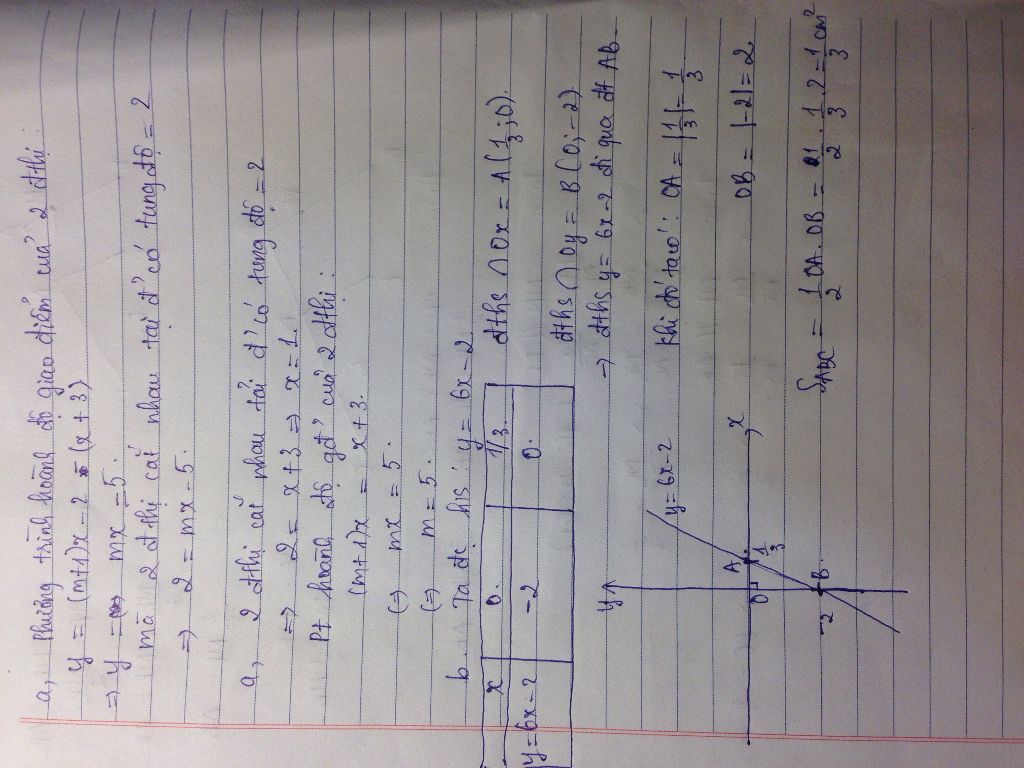 a, Phương trình hoành độ giao điểm của 2 đthị:
y = (m+1)x - 2 - (x + 3)
⇒ y = mx - 5.
mà 2 đthị cắt nhau tại đ' có tung độ = 2
⇒ 2 = mx - 5.
a, 2 đthị cắt nhau tại đ' có tung độ = 2
⇒ 2 = x+3 ⇒ x = 1.
Pt hoành độ gđ' của 2 đthị:
(m+1)x = x + 3.
(⇒ mx = 5.
(⇒ m = 5.
b. Ta đc hịs y = 6x - 2
x 0. 1/3.
y = 6x - 2 -2 0.
đths ∩ Ox = A (1/3; 0).
đths ∩ Oy = B (0; -2)
→ đths y = 6x - 2 đi qua đt AB
Khi đó ta có: OA = |1/3| = 1/3
OB = |-2| = 2
S = 1/2 OA. OB = 1/2 . 1/3 . 2 = 1/3 cm²
y
y = 6x - 2
A
1/3
x
O
B
-2